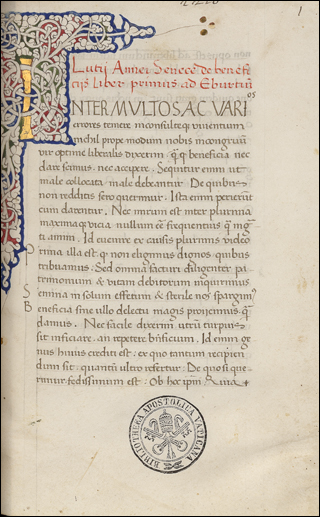 1
Lutii Annei Senece de benefi
ciis liber primus ad Eburtiu
NTER MULTOS AC VARI
os
errores temere inconsulteq viventium
nichil prope modum nobis
vir optime liberalis dixerim . qq beneficia nec
dare scimus . nec accipere . Sequitur enim ut
male collocata / male debeantur . De quibus
non redditis sero querimur . Ista enim perierut
cum darentur . Nec mirum est inter plurima
maximaq vicia nullum ee frequentius q ingti
ti animi . Id evenire ex causis plurimis video
prima illa est q non eligimus dignos . quibus
tribuamus : Sed omina facturi diligenter pa
trimonium & vitam debitorum inquirimus
semina in solum effetum & sterile non spargim9
beneficia sine ullo delectu magis proiicimus . q
damus . Ne facile dixerim utru turpius
sit inficiare . an repetere bnficium . Id enim ge
nus huius crediti est : ex quo tantum recipien
dum sit . quantu ultro refertur . De quo si que
rimur fedissimum est : Ob hoc ipm Quia +
D
S
B
BIBLIOTHECA APOSTOLICA VATICANA